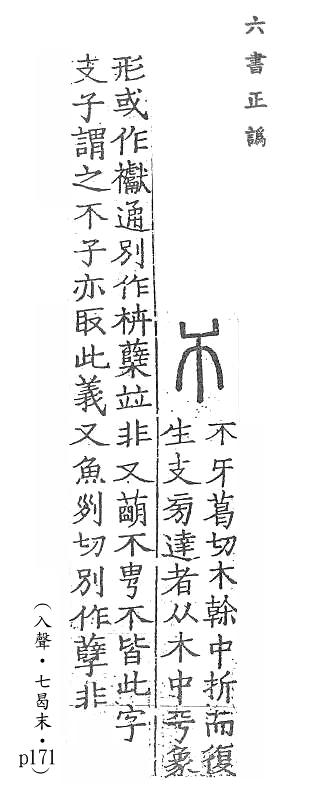 六書正譌
不牙葛切木榦中折而復
生支旁達者从木中丐象
形或作𣡌通別作枿蘖竝非又萠不甹不皆此字
支子謂之不子亦取此義又魚列切別作孽非
(入聲・七曷末・p171)